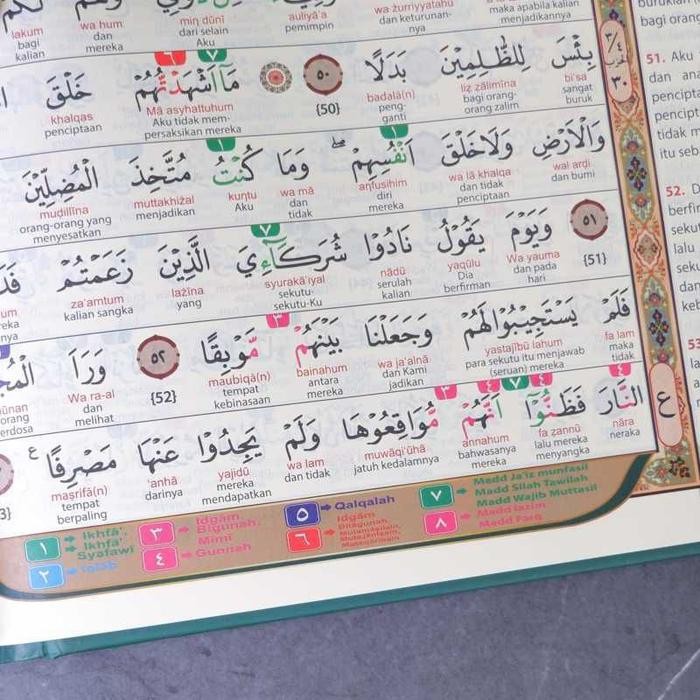 lakum wa hum min dūnī auliyā'a wa żurriyyatahū
bagi kalian dan mereka dari selain Aku pemimpin dan keturunan-nya maka apabila kalian menjadikannya
بِئْسَ لِلظّٰلِمِيْنَ بَدَلًا ٥٠ مَآ اَشْهَدْتُّهُمْ خَلْقَ
bi'sa liẓ ẓālimīna badalā(n) {50} Mā asyhattuhum khalqas
sangat buruk bagi orang-orang zalim peng-ganti Aku tidak mem-persaksikan mereka penciptaan
وَالْاَرْضِ وَلَا خَلْقَ اَنْفُسِهِمْ ۖ وَمَا كُنْتُ مُتَّخِذَ الْمُضِلِّيْنَ
wal arḍi wa lā khalqa aṇfusihim wa mā kuṇtu muttakhiżal muḍillīna
dan bumi dan tidak penciptaan diri mereka dan tidak Aku menjadikan orang-orang yang menyesatkan
٥١ وَيَوْمَ يَقُوْلُ نَادُوْا شُرَكَاۤءِيَ الَّذِيْنَ زَعَمْتُمْ
{51} Wa yauma yaqūlu nādū syurakā'iyal lażīna za'amtum
dan pada hari Dia berfirman serulah kalian sekutu-sekutu-Ku yang kalian sangka
فَلَمْ يَسْتَجِيْبُوْا لَهُمْ وَجَعَلْنَا بَيْنَهُمْ مَّوْبِقًا ٥٢ وَرَاَ
fa lam yastajībū lahum wa ja'alnā bainahum maubiqā(n) {52} Wa ra-al
maka tidak para sekutu itu menjawab (seruan) mereka dan Kami jadikan antara mereka tempat kebinasaan dan melihat
النَّارَ فَظَنُّوْٓا اَنَّهُمْ مُّوَاقِعُوْهَا وَلَمْ يَجِدُوْا عَنْهَا مَصْرِفًا ع
nāra fa ẓannū annahum muwāqi'ūhā wa lam yajidū 'anhā maṣrifā(n)
neraka lalu mereka menyangka bahwasanya mereka jatuh kedalamnya dan tidak mereka mendapatkan darinya tempat berpaling
١ Ikhfa', Ikhfa' Syafawi
٢ Iqlab
٣ Idgam Bigunnah, Mimi
٤ Gunnah
٥ Qalqalah
٦ Idgam
٧ Madd Ja'iz munfasil Madd Silah Tawilah Madd Wajib Muttasil
٨ Madd lazim Madd Farq
٣/٤
الحزب
٣٠
ع
51. Aku
dan
pencipta
tidak
itu seb
52.
berfir
sekut
lalu
seku
dan
53